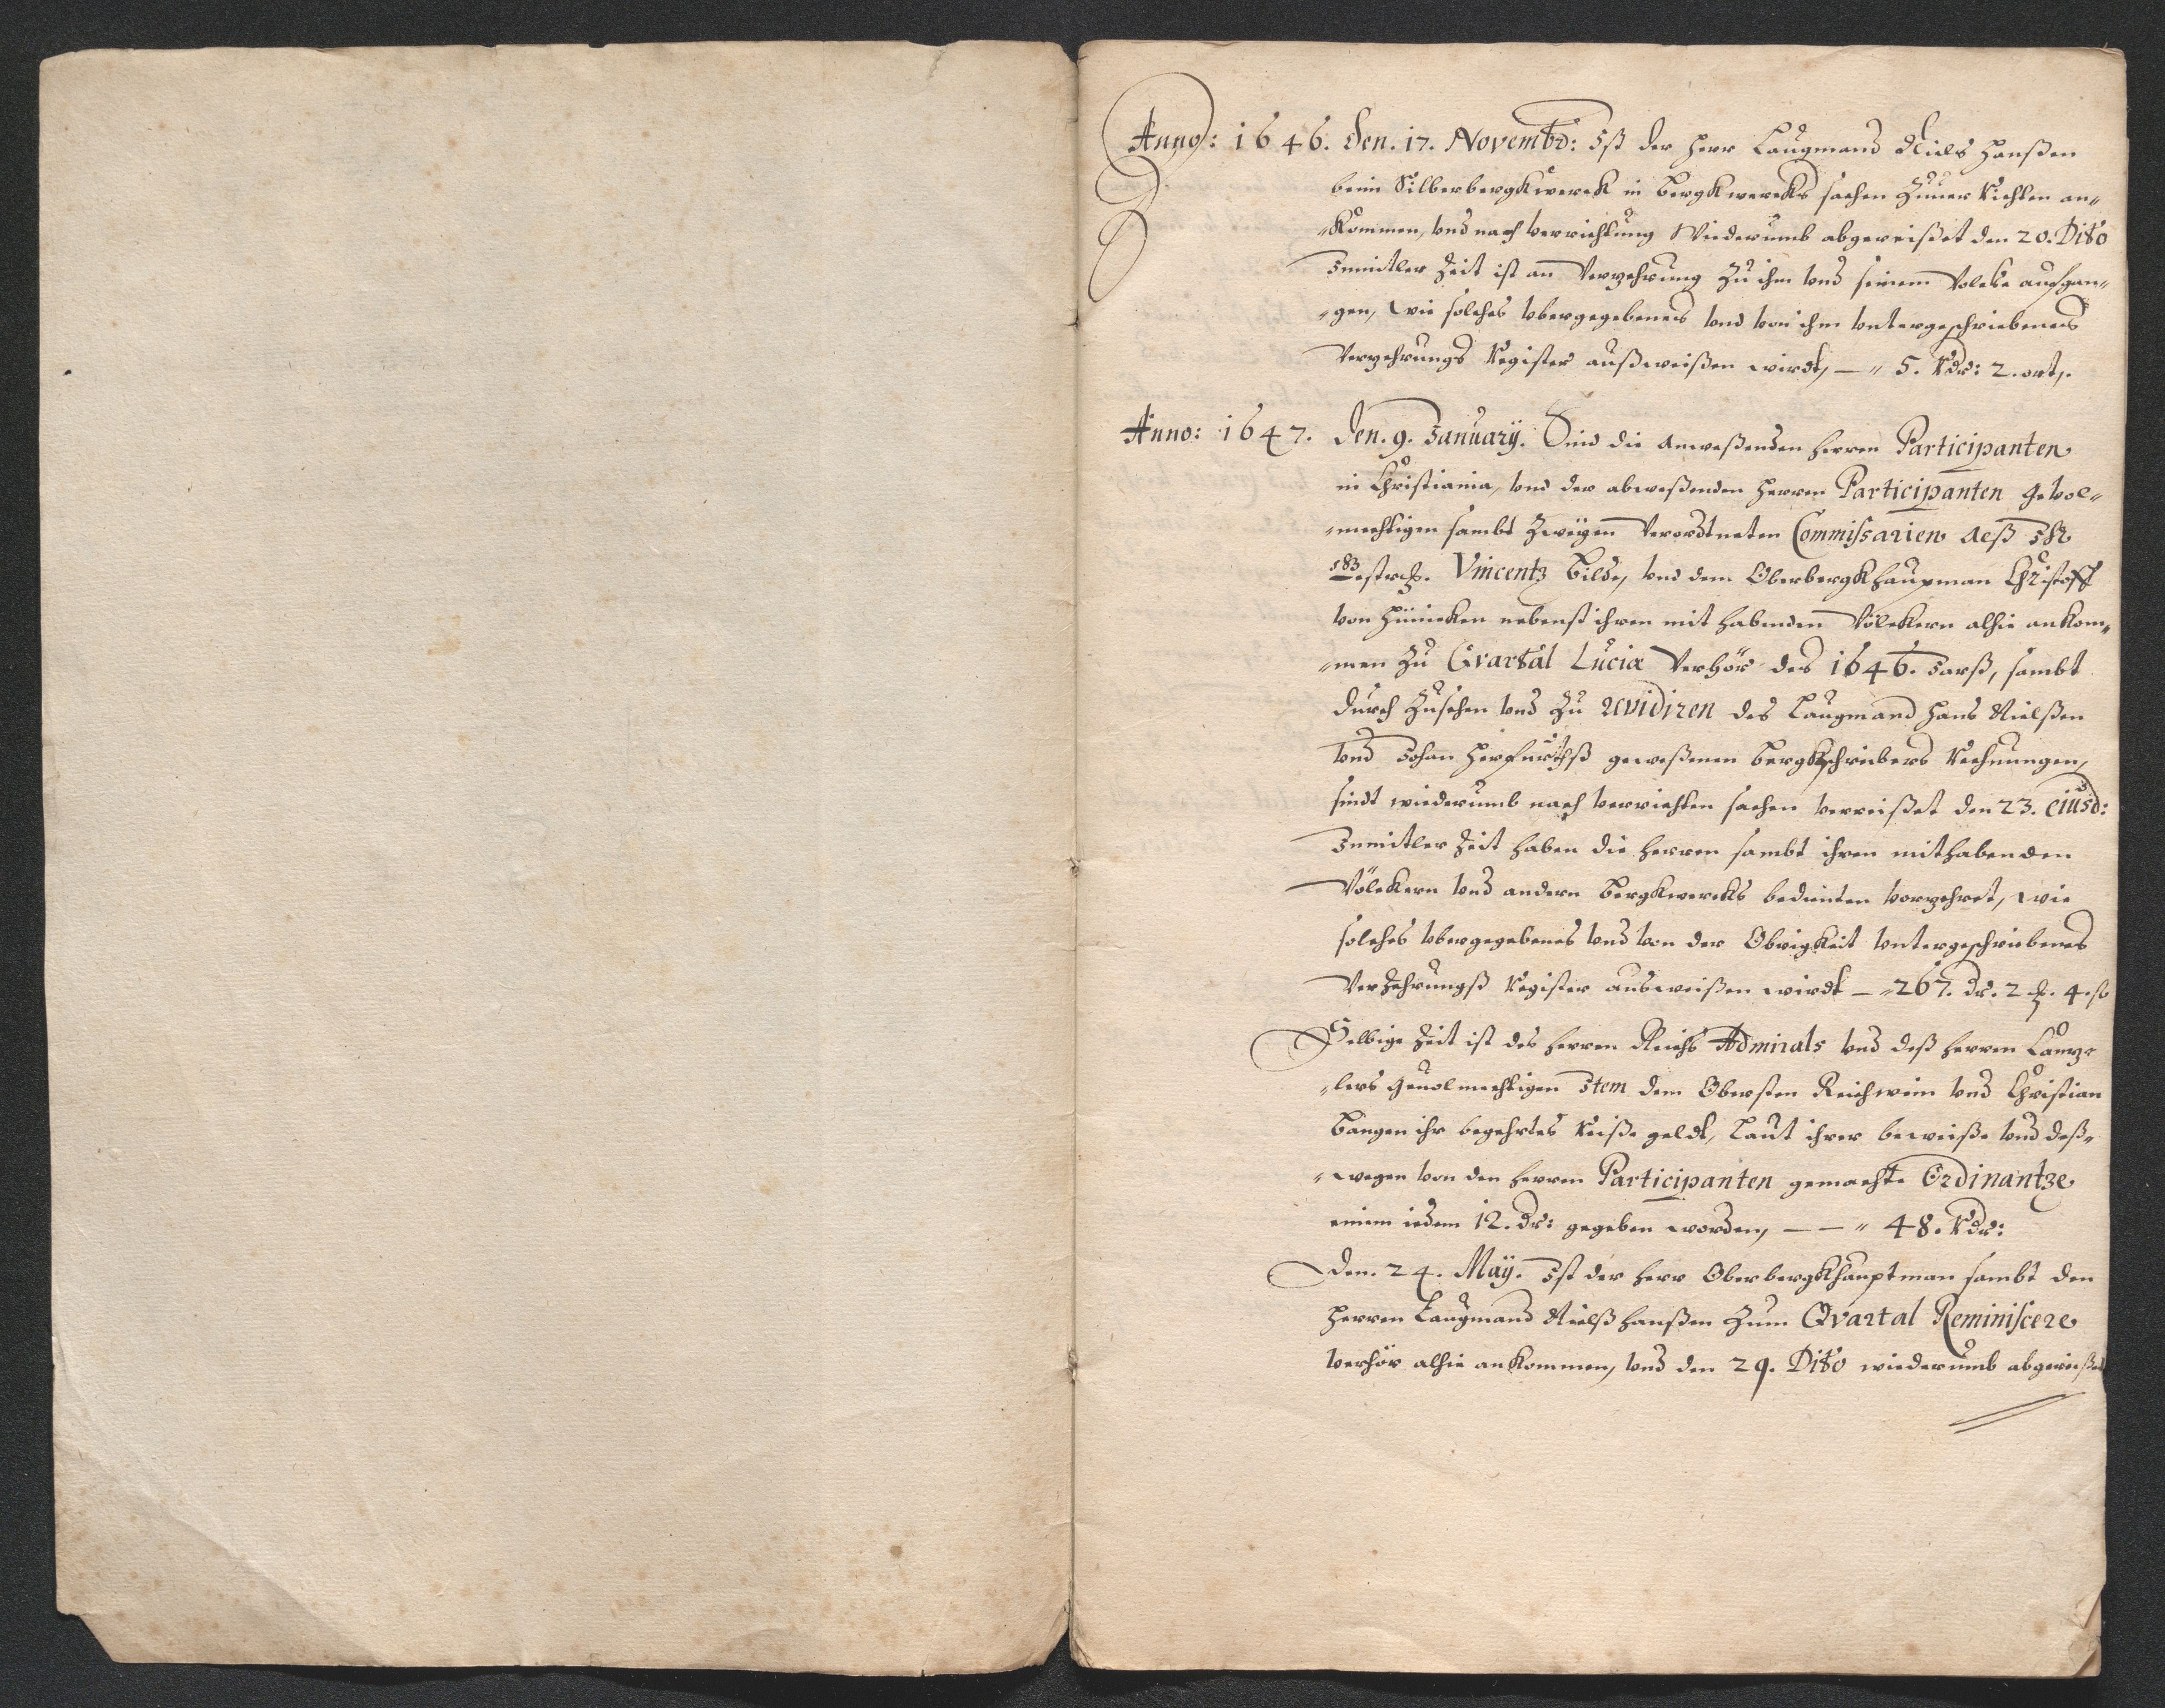 Anno: 1646. Den. 17. Novembr: Ist der Herr Laugmand Niels Hanßen
beim Silberbergkwerck in bergkwercks sachen zuuer Richten an„
„kommen, vnd nach verrichtung Wiederumb abgereißet den 20. Dito
Inmitler Zeit ist an Verzehrung zu ihm vnd seinem Volcke aufgan„
„gen, wie solches vbergegebenes vnd von ihm vntergeschriebenes
Verzehrungs Register außweißen wirdt, — „ 5. Rdr: 2. ort,.
Anno: 1647. Den. 9. January. Sind die Anweßenden Herren Participanten
in Christiania, vnd der abweßenden Herren Participanten Gevol„
„mechtigen sambt zweyen Verordtneten Commissarien deß
Vincentz Bilde, vnd dem Oberbergkhaupman Christoff
von Hünicken nebenst ihren mit habenden Völckern alhie ankom„
„men zu Qvartal Luciæ Verhör des 1646. Jarß, sambt
durch zusehen vnd zu revidiren des Laugmand Hans Nielßen
vnd Johan Herfurthß geweßenen Bergkschreibers Rechnungen,
sindt wiederumb nach verrichten sachen verreißet den 23. eiusd:
Inmitler Zeit haben die Herren sambt ihren mithabenden
Völckern vnd andern Bergkwercks bedienten vorzehret, wie
solches vbergegebenes vnd von der Obrigkeit vntergeschriebenes
Verzehrungß Register ausweißen wirdt — „267. dr. 2 4. ß
Selbige Zeit ist des Herren Reichs Admirals vnd deß Herren Cantz„
„lers Geuolmechtigen Item dem Obersten Reichwein vnd Christian
Bangen ihr begehrtes Reiße geldt, Laut ihrer beweiße vnd deß„
„wegen von den Herren Participanten gemachte Ordinantze
einem iedem 12. dr: gegeben worden, — — „ 48. Rdr:
Den. 24. May. Ist der Herr Oberbergkhauptman sambt den
Herren Laugmand Nielß Hanßen zum Qvartal Reminiscere
verhör alhie ankommen, vnd den 29. Dito wiederumb abgereißet